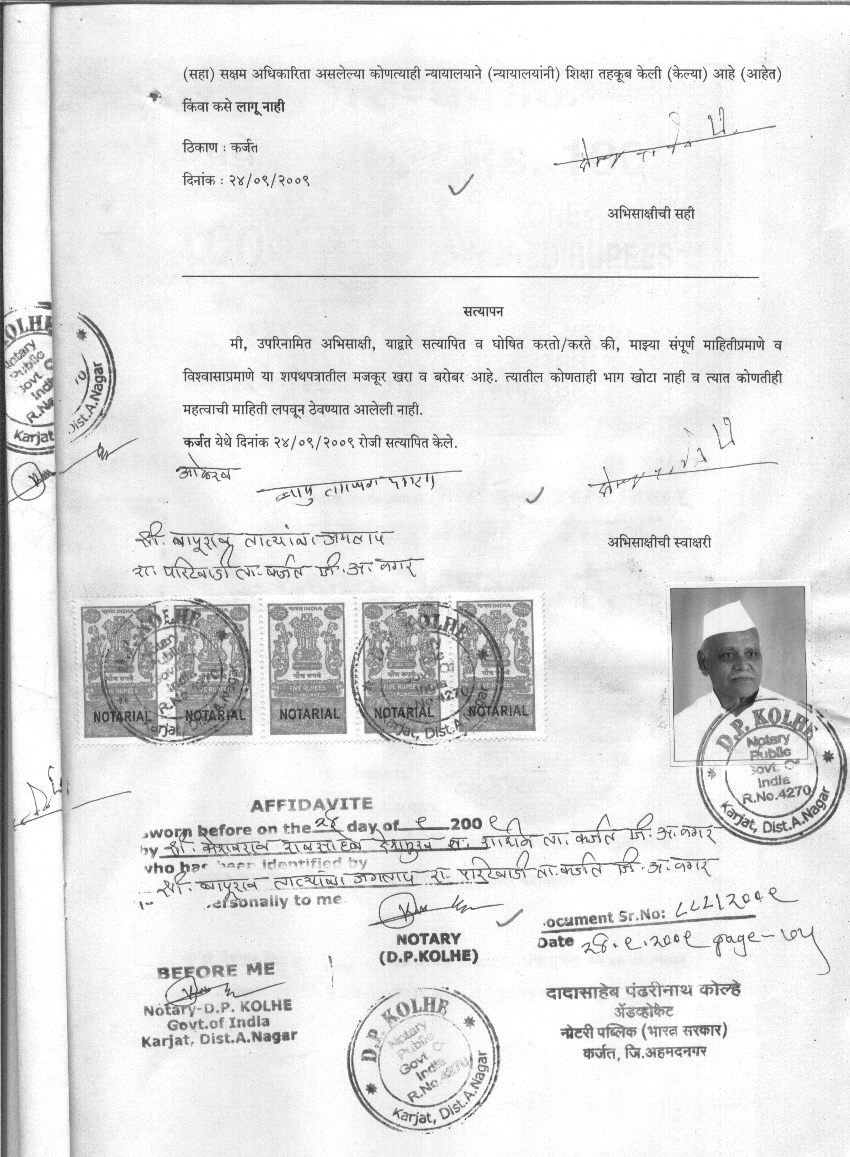 (सहा) सक्षम अधिकारिता असलेल्या कोणत्याही न्यायालयाने (न्यायालयांनी) शिक्षा तहकूब केली (केल्या) आहे (आहेत)
किंवा कसे लागू नाही
ठिकाण : कर्जत
दिनांक : २४/०९/२००९
अभिसाक्षीची सही
सत्यापन
मी, उपरिनामित अभिसाक्षी, याद्वारे सत्यापित व घोषित करतो/करते की, माझ्या संपूर्ण माहितीप्रमाणे व
विश्वासाप्रमाणे या शपथपत्रातील मजकूर खरा व बरोबर आहे. त्यातील कोणताही भाग खोटा नाही व त्यात कोणतीही
महत्वाची माहिती लपवून ठेवण्यात आलेली नाही.
कर्जत येथे दिनांक २४/०९/२००९ रोजी सत्यापित केले.
ओळखले
श्री. बापूराव तात्याबा जगताप
रा. परिटवाडी ता. कर्जत जि. अ. नगर
अभिसाक्षीची स्वाक्षरी
KOLHE
Notary
Public
Govt. O
India
R.No
Karjat, Dist.A.Nagar
भारत INDIA
पाँच रुपये
FIVE RUPEES
NOTARIAL NOTARIAL NOTARIAL NOTARIAL NOTARIAL
D.P. KOLHE
Notary
Public
Govt. Of
India
R.No.4270
Karjat, Dist.A.Nagar
AFFIDAVITE
sworn before on the २४ day of ९ 200९
by श्री. केशवराव रावसाहेब देशमुख रा. राशीन ता. कर्जत जि. अ. नगर
who has been identified by
श्री. बापूराव तात्याबा जगताप रा. परिटवाडी ता. कर्जत जि. अ. नगर
ersonally to me
NOTARY
(D.P.KOLHE)
ocument Sr.No: ८८८/२००९
Date २४.९.२००९ page-७५
BEFORE ME
Notary-D.P. KOLHE
Govt.of India
Karjat, Dist.A.Nagar
D.P. KOLHE
Notary
Public
Govt O
India
R.No.4270
Karjat, Dist.A.Nagar
दादासाहेब पंढरीनाथ कोल्हे
ॲडव्होकेट
नोटरी पब्लिक (भारत सरकार)
कर्जत, जि.अहमदनगर